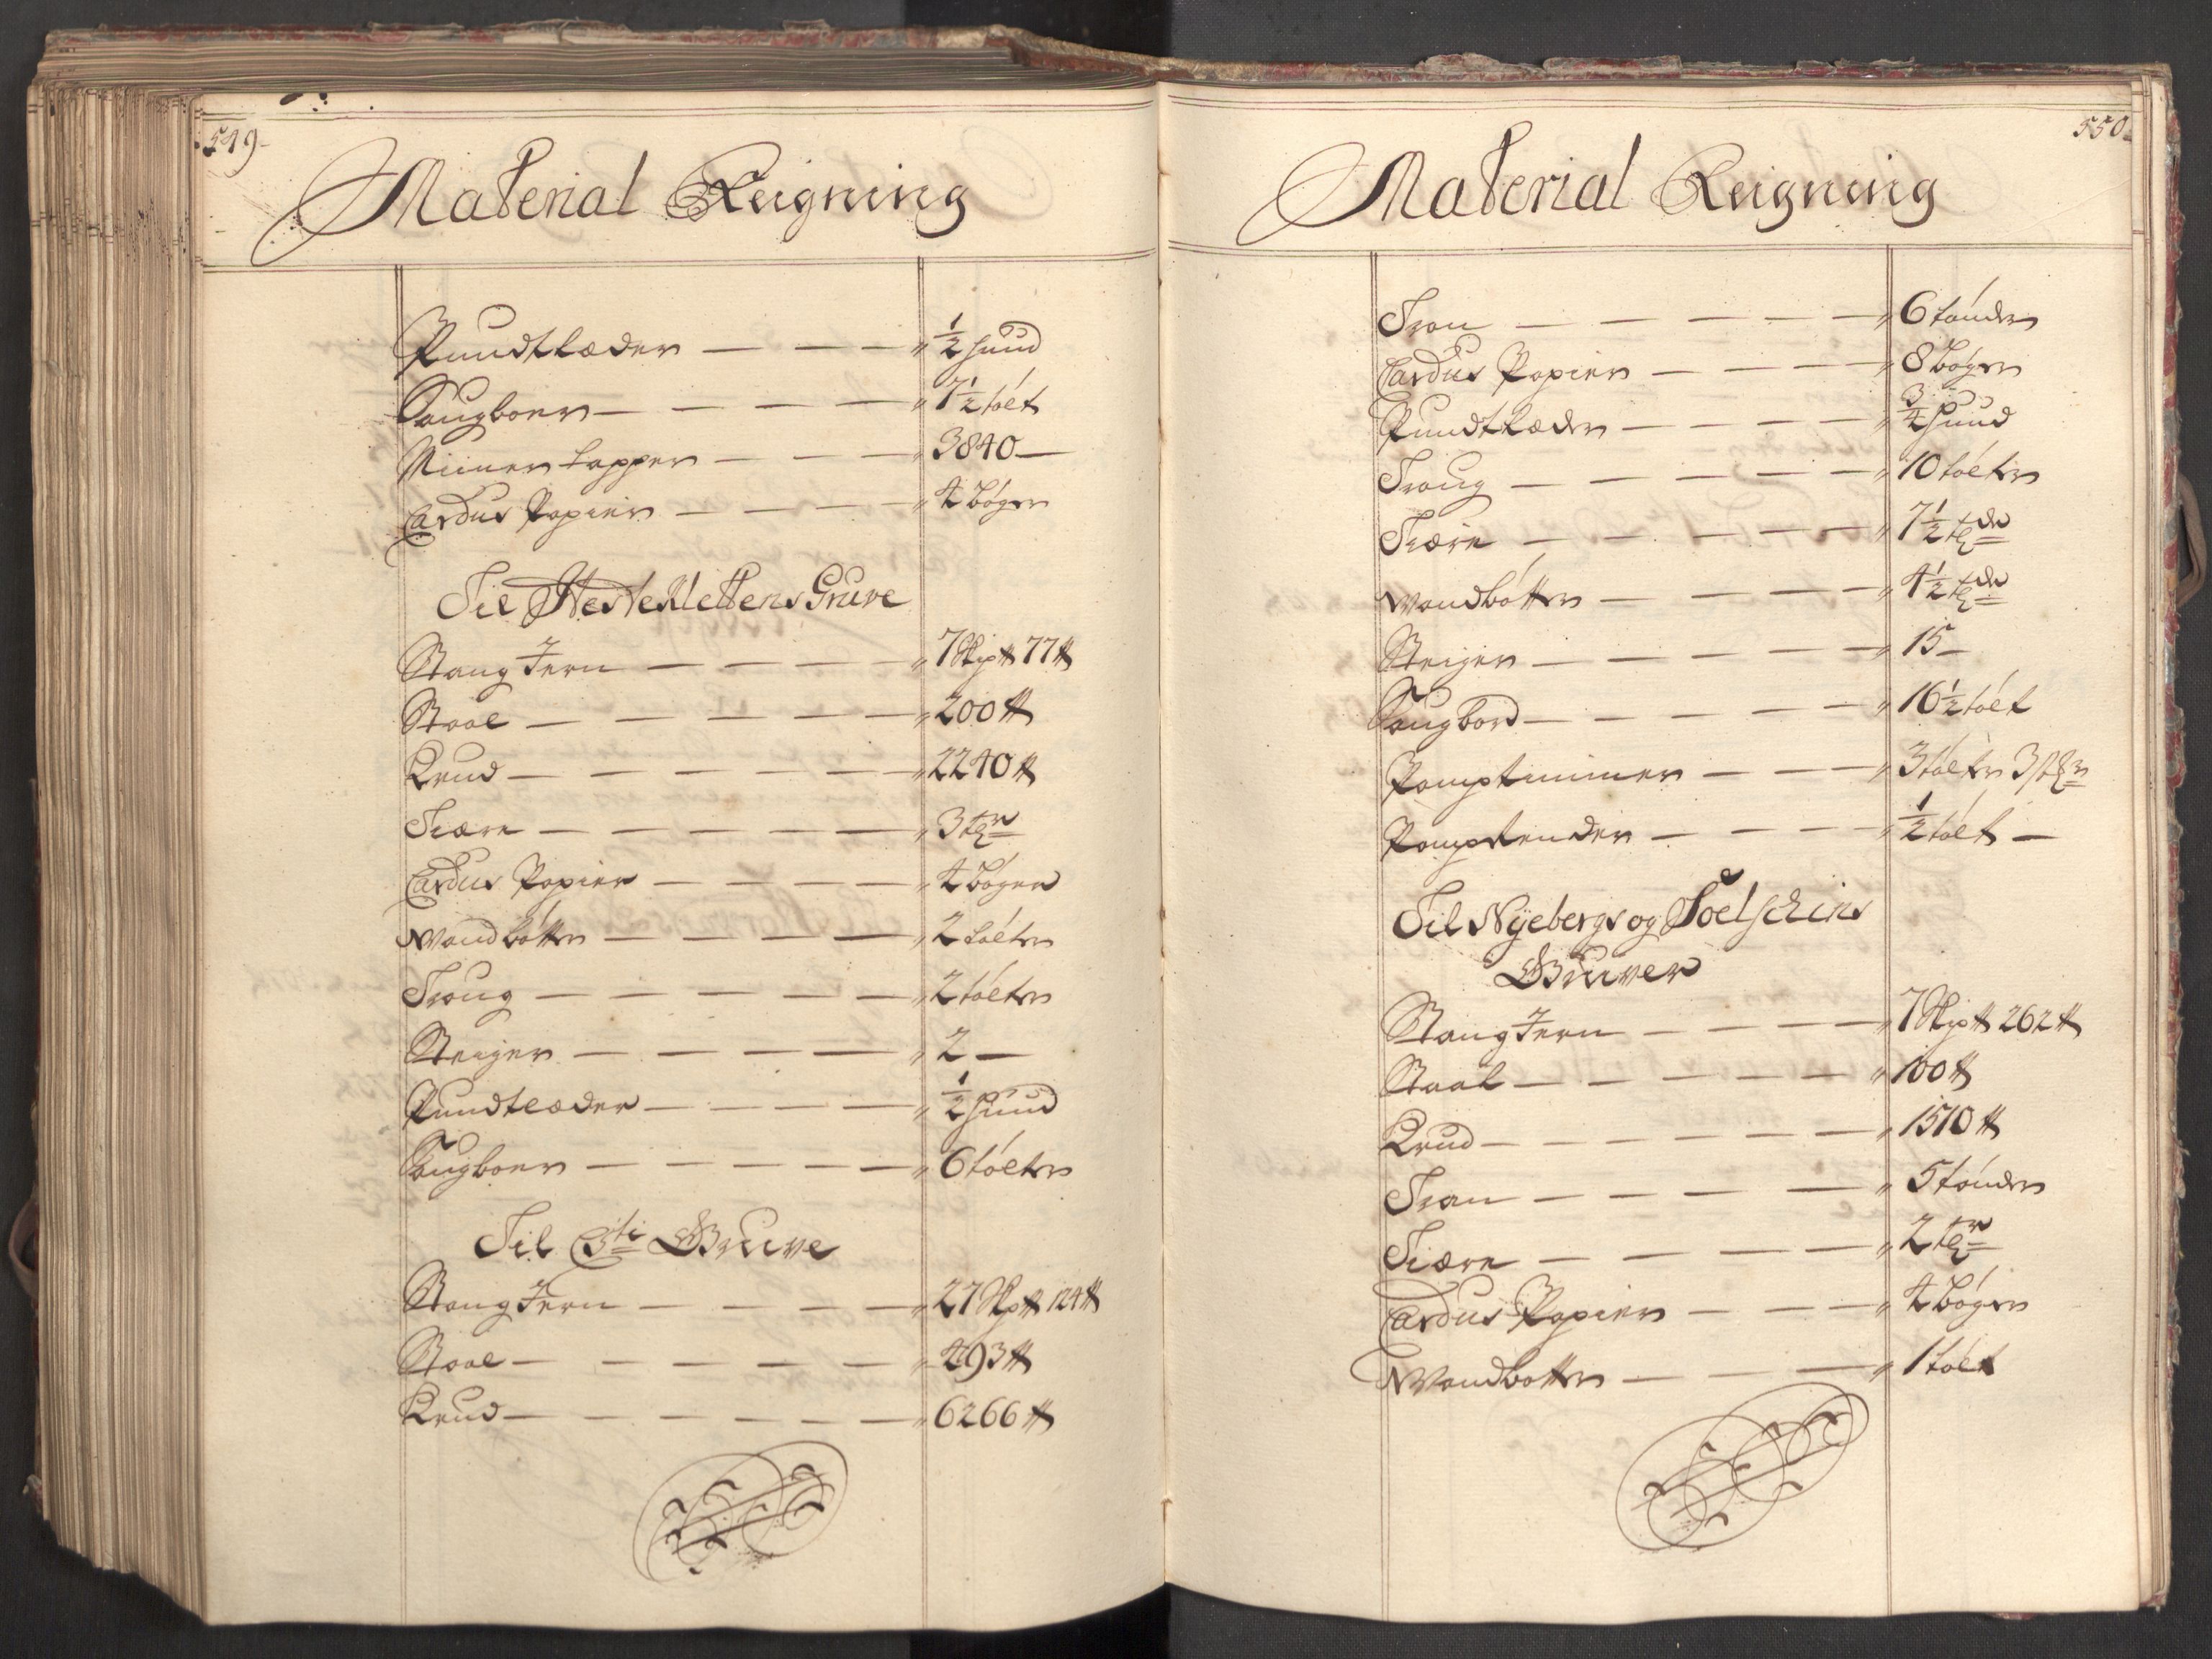 549
Material Reigning
Pundtlæder — — — " ½ Huud
Saugboer — — — — " 7½ tólt
Miiner Lapper — — — " 3840 —
Cardus Papier — — — — " 4 bøger
Til Hesteklettens Gruve
Stang Jern — — — — " 7 Skp℔ 77 ℔
Staal — — — — — " 200 ℔
Krud — — — — — — " 2240 ℔
Tiære — — — — — " 3 tr
Cardus Papier — — — — " 4 bøger
Wandbøtter — — — — " 2 tólter
Troug — — — — — " 2 tólter
Steiger — — — — " 2 —
Pundtlæder — — — — " ½ Huud
Saugboer — — — — — " 6 tólter
Til Gruve
Stang Jern — — — — " 27 Skp℔ 124 ℔
Staal — — — — — " 493 ℔
Krud — — — — — — " 6266 ℔
550
Material Reigning
Tran — — — — — — " 6 tønder
Cardus Papier — — — — " 8 bøger
Pundtlæder — — — — " ¾ Huud
Troug — — — — — " 10 tólter
Tiære — — — — — " 7½ tdr
Wandbøtter — — — — " 4½ tdr
Steiger — — — — — " 15 —
Saugbord — — — — — " 16½ tólt
Pomptimmer — — — " 3 tólter 3 str
Pompkender — — — — " ½ tólt —
Til Nyebergs og Soelschins
Gruver
Stang Jern — — — — " 7 Skp℔ 262 ℔
Staal — — — — — — " 100 ℔
Krud — — — — — — " 1510 ℔
Tran — — — — — " 5 tønder
Tiære — — — — — " 2 tr
Cardus Papier — — — " 4 bøger
Wandbøtter — — — — " 1 tólt